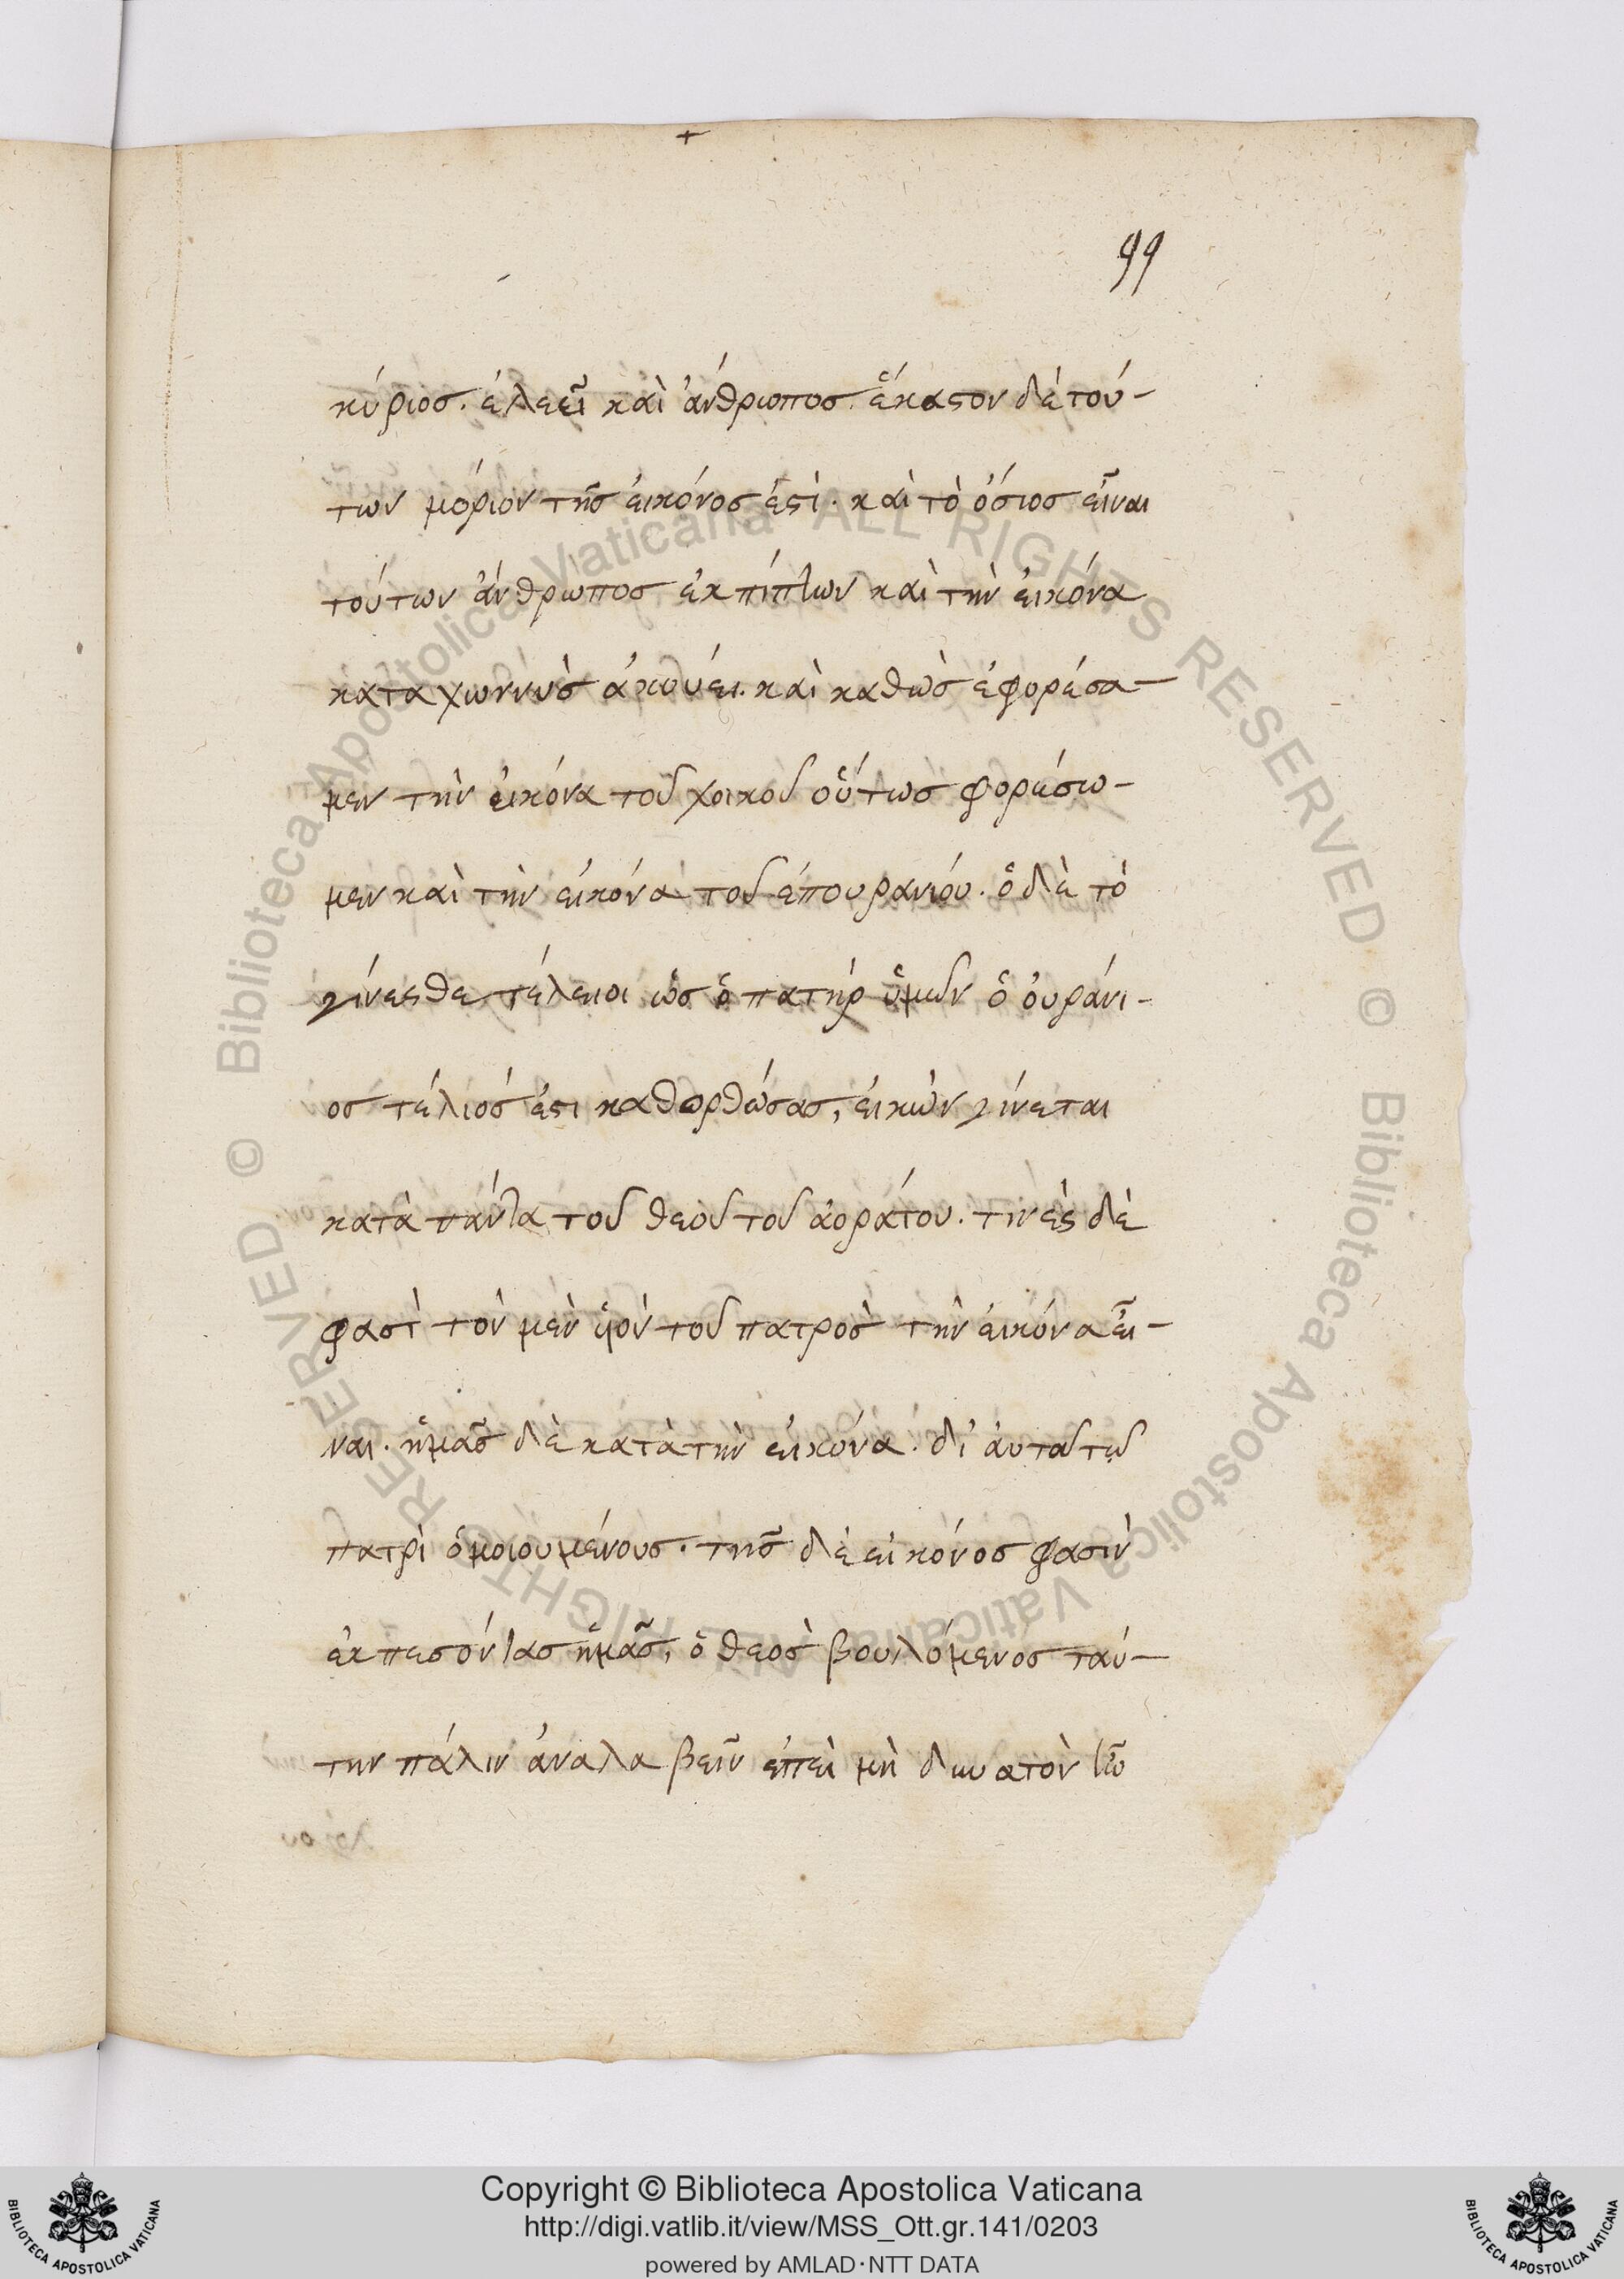 99
κύριος. ἐλεεῖ καὶ ἄνθρωπος. ἕκαστον δὲ τού-
των μόριον τῆς εἰκόνος ἐστὶ. καὶ τὸ ὅσιος εἶναι
τούτων ἄνθρωπος ἐκπίπτων καὶ τὴν εἰκόνα
καταχωννὺς ἀκούει. καὶ καθὼς ἐφορέσα-
μεν τὴν εἰκόνα τοῦ χοικοῦ οὕτως φορέσω-
μεν καὶ τὴν εἰκόνα τοῦ ἐπουρανίου. ὁ δὲ τὸ
γίνεσθε τέλειοι ὡς ὁ πατὴρ ὑμῶν ὁ οὐράνι-
ος τέλιός ἐστι καθορθώσας, εἰκὼν γίνεται
κατὰ πάντα τοῦ θεοῦ τοῦ ἀοράτου. τινὲς δὲ
φασὶ τὸν μὲν υἱὸν τοῦ πατρὸς τὴν εἰκόνα εἶ-
ναι. ἡμᾶς δὲ κατὰ τὴν εἰκόνα. δι' αὐτοῦ τῷ
πατρὶ ὁμοιουμένους. τῆς δὲ εἰκόνος φασὶν
ἐκπεσόντας ἡμᾶς, ὁ θεὸς βουλόμενος ταύ-
την πάλιν ἀναλαβεῖν ἐπεὶ μὴ δυνατὸν
Copyright © Biblioteca Apostolica Vaticana
http://digi.vatlib.it/view/MSS_Ott.gr.141/0203
powered by AMLAD·NTT DATA
BIBLIOTECA APOSTOLICA VATICANA
BIBLIOTECA APOSTOLICA VATICANA
© Biblioteca Apostolica Vaticana ALL RIGHTS RESERVED © Biblioteca Apostolica Vaticana ALL RIGHTS RESERVED